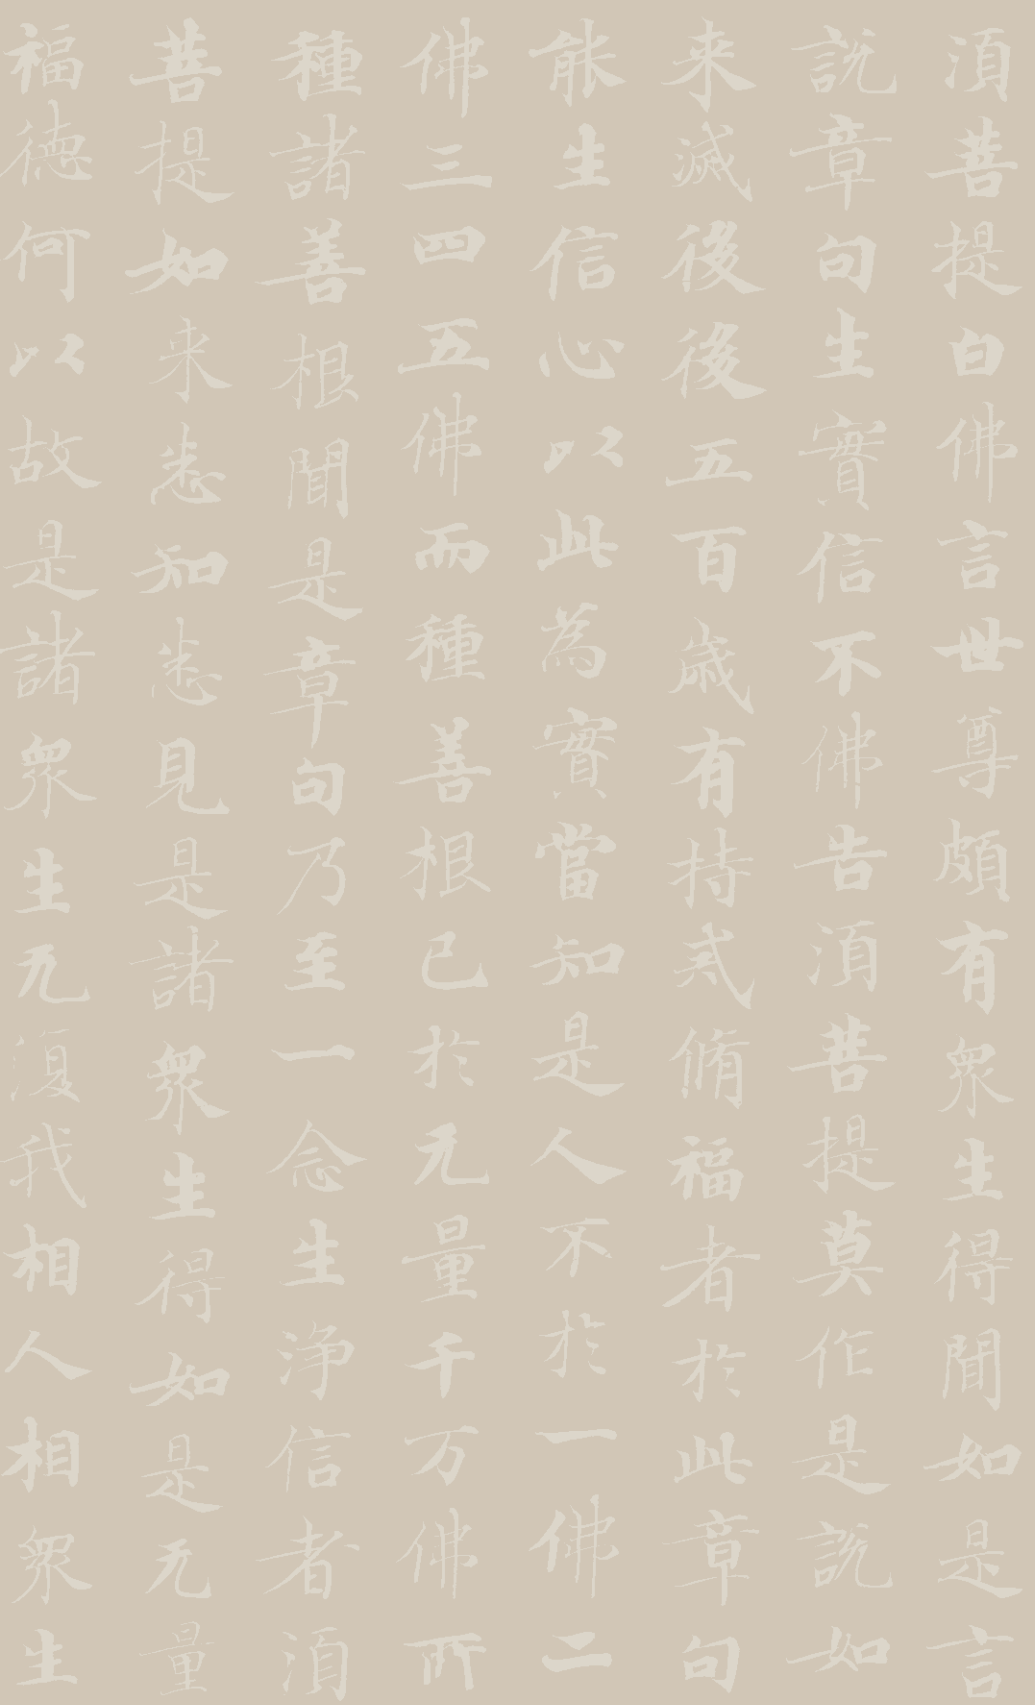 須菩提白佛言世尊頗有衆生得聞如是言
說章句生實信不佛告須菩提莫作是說如
来滅後後五百歲有持戒脩福者於此章句
能生信心以此為實當知是人不於一佛二
佛三四五佛而種善根已於无量千万佛所
種諸善根聞是章句乃至一念生淨信者須
菩提如来悉知悉見是諸衆生得如是无量
福德何以故是諸衆生无復我相人相衆生